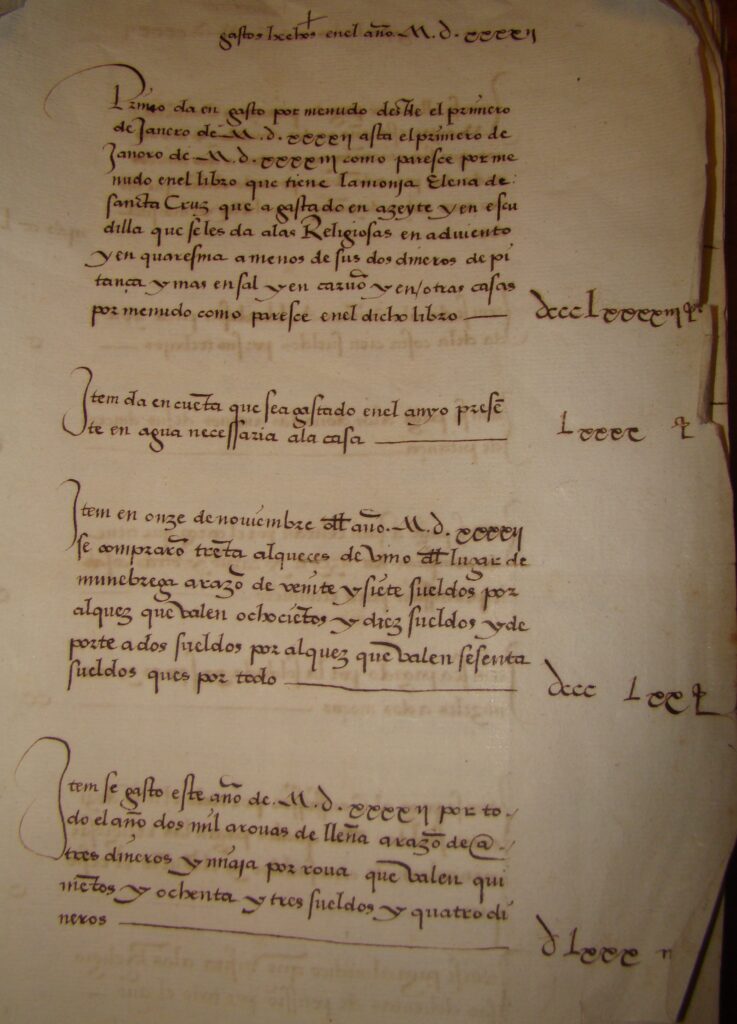 gastos hechos en el año M. d. xxxxij
Primo da en gasto por menudo desde el primero
de Janero de M. d. xxxxij asta el primero de
Janoro de M. d. xxxxiij como paresce por me
nudo en el libro que tiene la monja Elena de
sancta Cruz que a gastado en azeyte y en escu
dilla que seles da alas Religiosas en adviento
y en quaresma a menos de sus dos dineros de pi
tança y mas en sal y en carvō y en otras casas
por menudo como paresce en el dicho libro
dcccLxxxxiij
Item da en cuēta que sea gastado en el anyo presē
te en agua necessaria ala casa
Lxxxx
Item en onze de noviembre dll año. M. d. xxxxij
se comprarō trēta alqueces de vino dll lugar de
munebrega a razō de veinte y siete sueldos por
alquez que valen ochociētos y diez sueldos y de
porte a dos sueldos por alquez que valen sesenta
sueldos ques por todo
dccc Lxx
Item se gasto este año de. M. d. xxxxij por to
do el año dos mil arovas de lleña a razō de @
tres dineros y miaja por rova que valen qui
niētos y ochenta y tres sueldos y quatro di
neros
d Lxxx